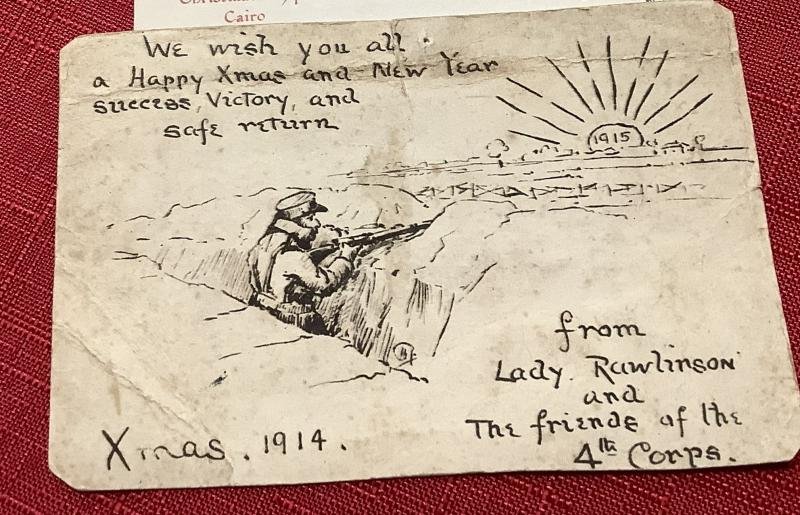 Cairo
We wish you all
a Happy Xmas and New Year
success, Victory, and
safe return
1915
from
Lady Rawlinson
and
The friends of the
4th Corps.
Xmas. 1914.